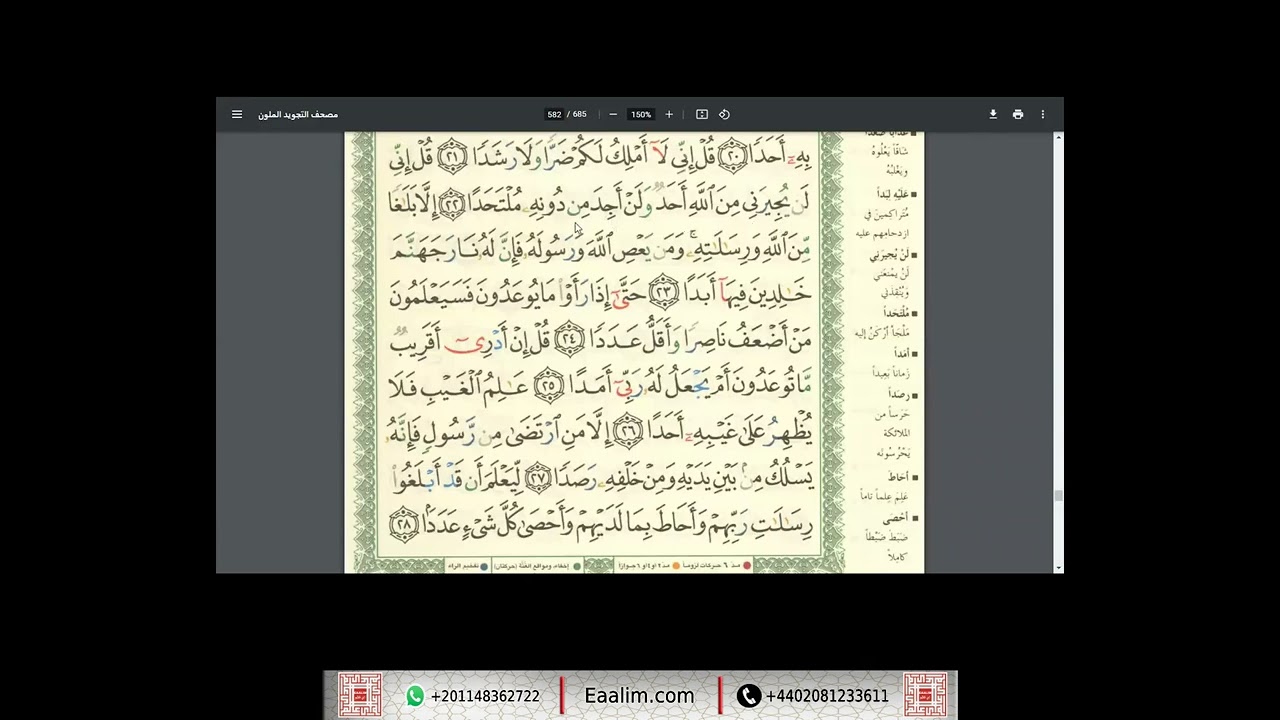 مصحف التجويد الملون
582 / 685
150%
بِهِۦٓ أَحَدًا ٢٠ قُلْ إِنِّي لَآ أَمْلِكُ لَكُمْ ضَرًّا وَلَا رَشَدًا ٢١ قُلْ إِنِّي
لَن يُجِيرَنِي مِنَ ٱللَّهِ أَحَدٌ وَلَنْ أَجِدَ مِن دُونِهِۦ مُلْتَحَدًا ٢٢ إِلَّا بَلَٰغًا
مِّنَ ٱللَّهِ وَرِسَٰلَٰتِهِۦ ۚ وَمَن يَعْصِ ٱللَّهَ وَرَسُولَهُۥ فَإِنَّ لَهُۥ نَارَ جَهَنَّمَ
خَٰلِدِينَ فِيهَآ أَبَدًا ٢٣ حَتَّىٰٓ إِذَا رَأَوْا۟ مَا يُوعَدُونَ فَسَيَعْلَمُونَ
مَنْ أَضْعَفُ نَاصِرًا وَأَقَلُّ عَدَدًا ٢٤ قُلْ إِنْ أَدْرِىٓ أَقَرِيبٌ
مَّا تُوعَدُونَ أَمْ يَجْعَلُ لَهُۥ رَبِّىٓ أَمَدًا ٢٥ عَٰلِمُ ٱلْغَيْبِ فَلَا
يُظْهِرُ عَلَىٰ غَيْبِهِۦٓ أَحَدًا ٢٦ إِلَّا مَنِ ٱرْتَضَىٰ مِن رَّسُولٍ فَإِنَّهُۥ
يَسْلُكُ مِنۢ بَيْنِ يَدَيْهِ وَمِنْ خَلْفِهِۦ رَصَدًا ٢٧ لِّيَعْلَمَ أَن قَدْ أَبْلَغُوا۟
رِسَٰلَٰتِ رَبِّهِمْ وَأَحَاطَ بِمَا لَدَيْهِمْ وَأَحْصَىٰ كُلَّ شَىْءٍ عَدَدًۢا ٢٨
عذاباً صعداً
شاقّاً يعلوه
ويغلبه
عليه لبداً
متراكمين في
ازدحامهم عليه
لن يجيرني
لن يمنعني
وينقذني
ملتحداً
ملجأ أركن إليه
أمداً
زماناً بعيداً
رصداً
حرساً من
الملائكة
يحرسونه
أحاط
علم علماً تاماً
أحصى
ضبط ضبطاً
كاملاً
مد ٦ حركات لزوماً
مد ٢ أو ٤ أو ٦ جوازاً
إخفاء، ومواقع الغنة (حركتان)
تفخيم الراء
+201148362722
Eaalim.com
+4402081233611